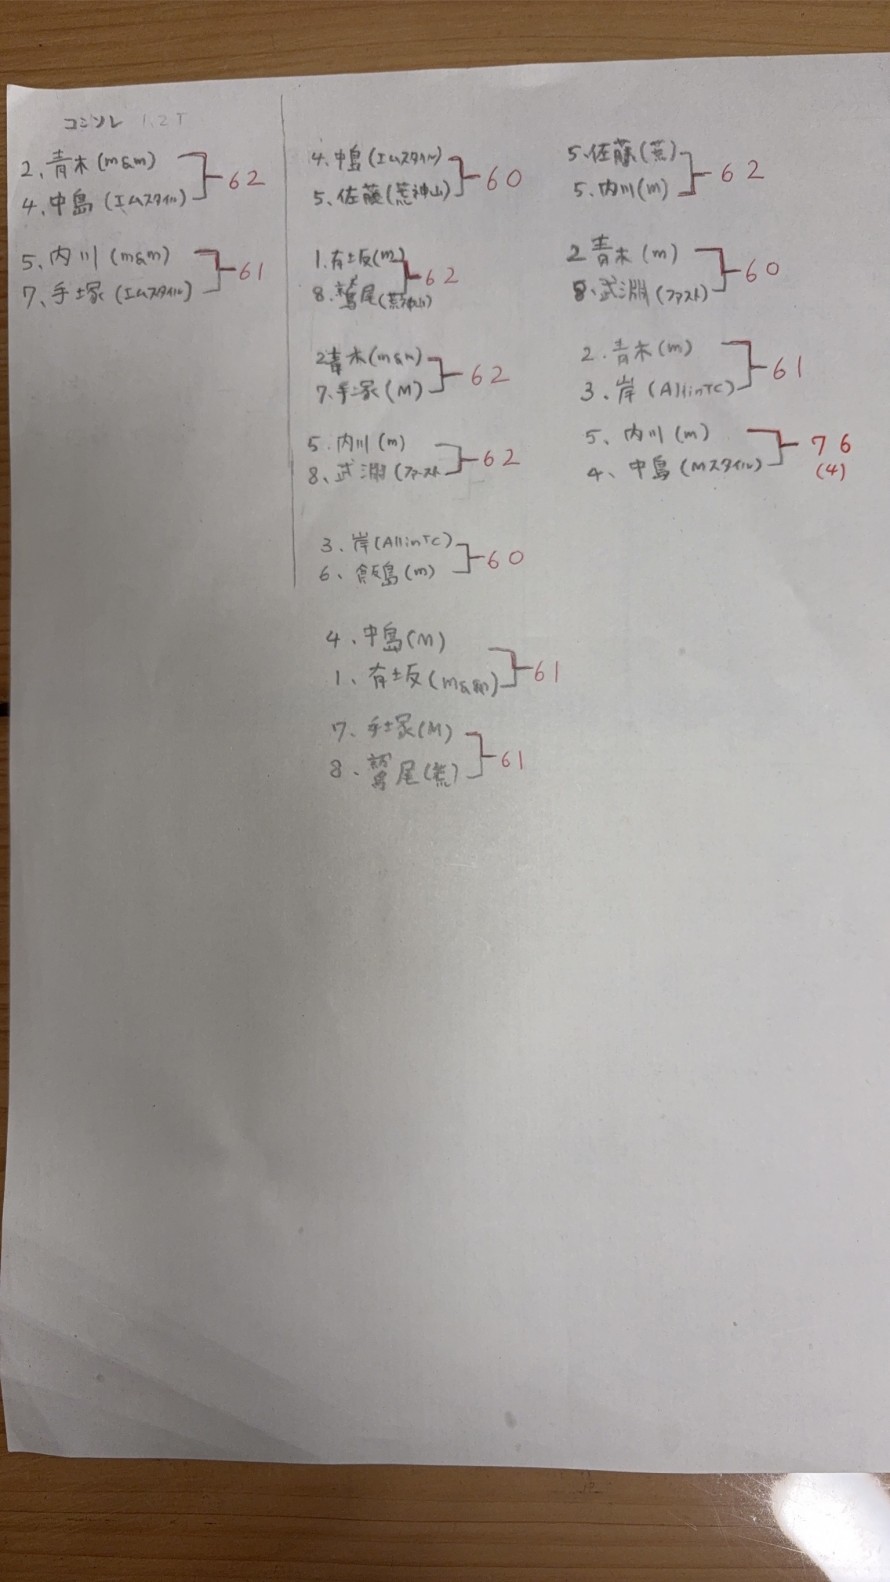 コンソレ 1.2T
2、青木(m&m)
4、中島(エムスタイル)
62
5、内川(m&m)
7、手塚(エムスタイル)
61
4、中島(エムスタイル)
5、佐藤(荒神山)
60
1.有坂(m2)
8.鷲尾(荒神山)
62
2青木(m&m)
7.手塚(M)
62
5.内川(m)
8、武淵(ファスト
62
3.岸(AllinTC)
6、飯島(m)
60
4.中島(M)
1、有坂(m&m)
61
7、手塚(M)
8.鷲尾(荒)
61
5.佐藤(荒)
5.内川(m)
62
2青木(m)
8.武淵(ファスト)
60
2.青木(m)
3.岸(AllinTC)
61
5、内川(m)
4、中島(Mスタイル)
76
(4)